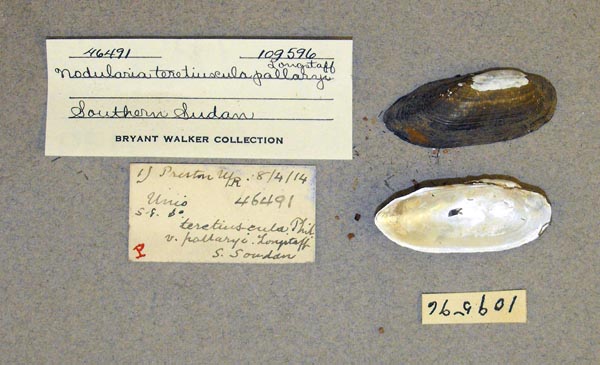 46491 109596
Longstaff
Nodularia teretiuscula pallaryi
Southern Sudan
BRYANT WALKER COLLECTION
Preston 8/4/14
Unio 46491
teretiuscula. Phil
v. pallaryi. Longstaff
S. Soudan
109596